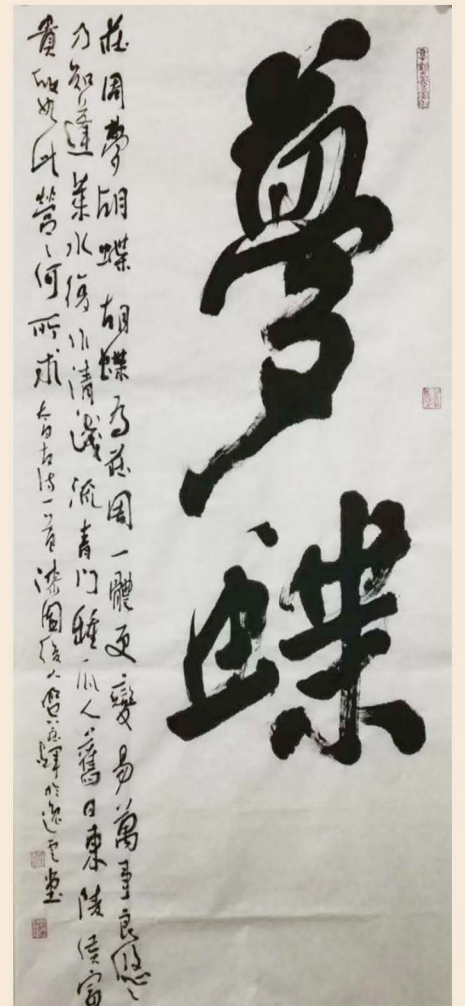 夢蝶
莊周夢胡蝶胡蝶為莊周一體更變易萬事良悠々
乃知蓬萊水復作清淺流青門種瓜人舊日東陵侯富
貴故如此營々何所求太白古詩一首漆園後人